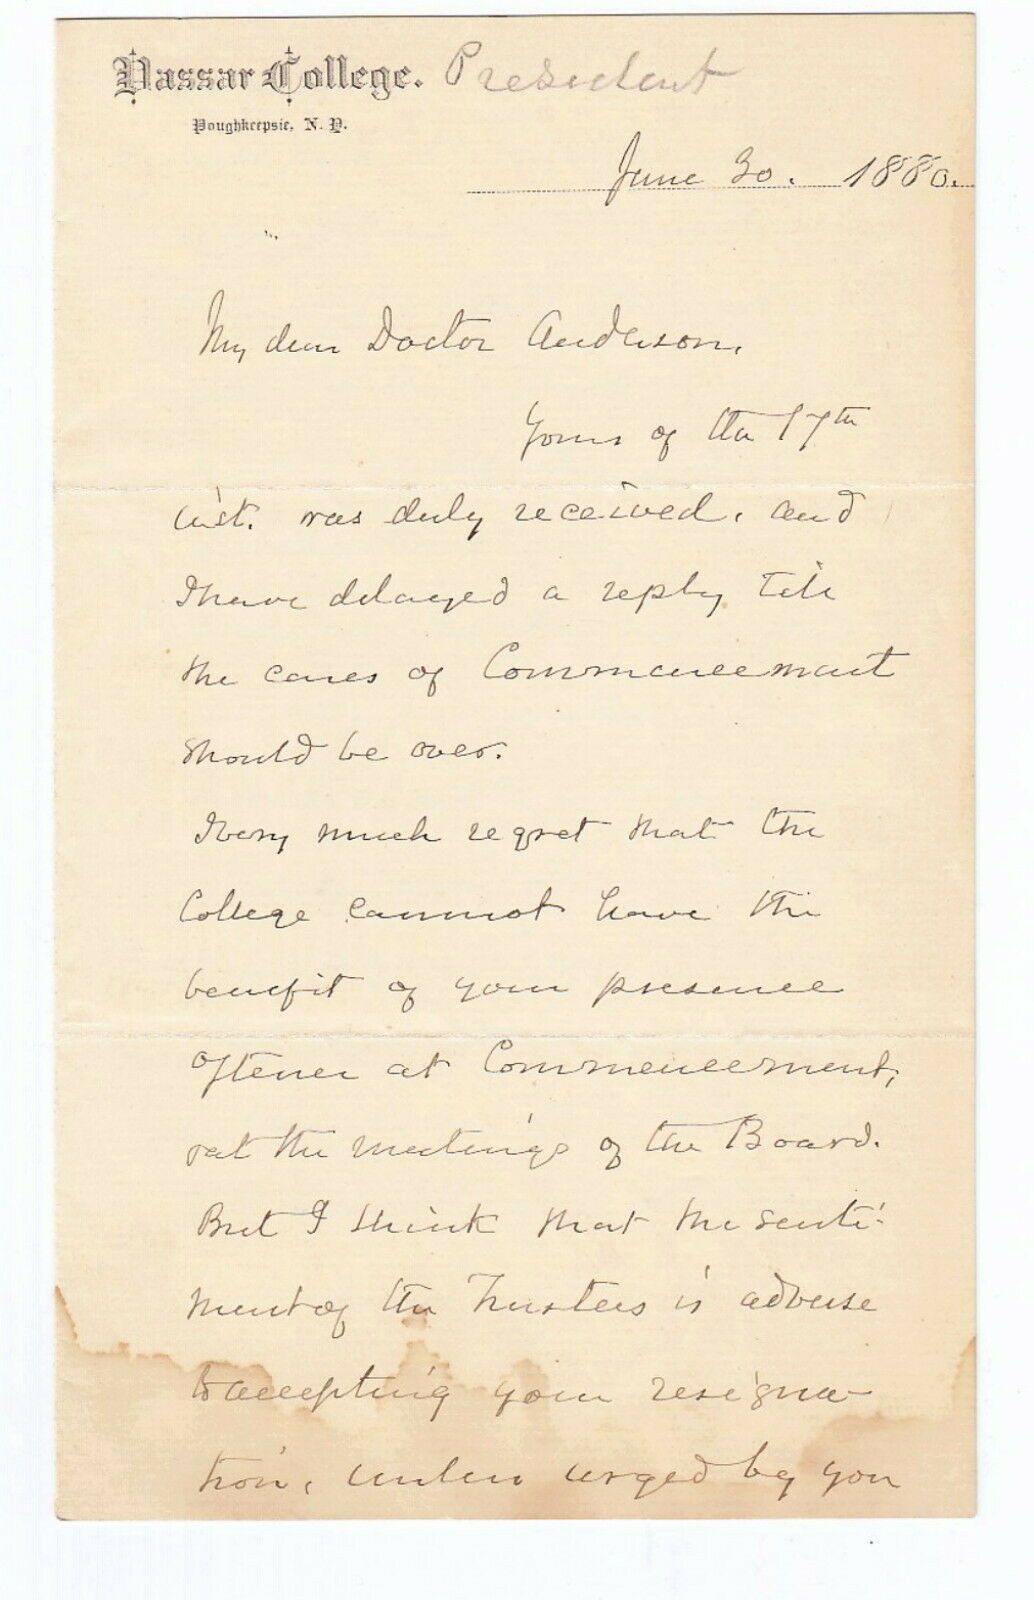 Vassar College. President
Poughkeepsie, N. Y.
June 30. 1880.
My dear Doctor Anderson,
Yours of the 17th
inst. was duly received, and
I have delayed a reply till
the cares of Commencement
should be over.
I very much regret that the
College cannot have the
benefit of your presence
oftener at Commencement,
& at the meetings of the Board.
But I think that the senti-
ment of the Trustees is adverse
to accepting your resigna-
tion, unless urged by you